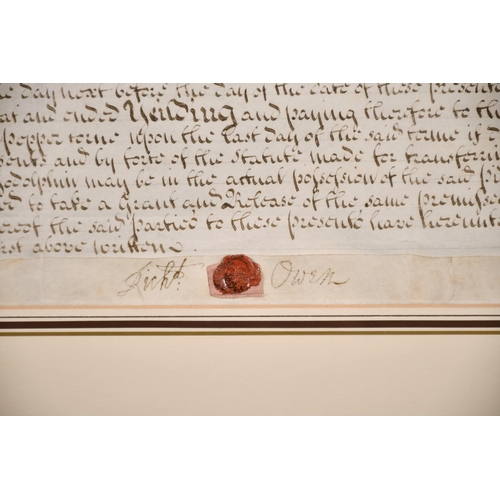 e day next before the day of the date of these present
at and ended Yeilding and paying therefore to th
pepper corne upon the last day of the said terme if d
ents and by force of the Statute made for transferrin
odolphin may be in the actual possession of the said p
ed to take a Grant and Release of the same premisse
ereof the said parties to these presents have hereunt
irst above written
Richd. Owen